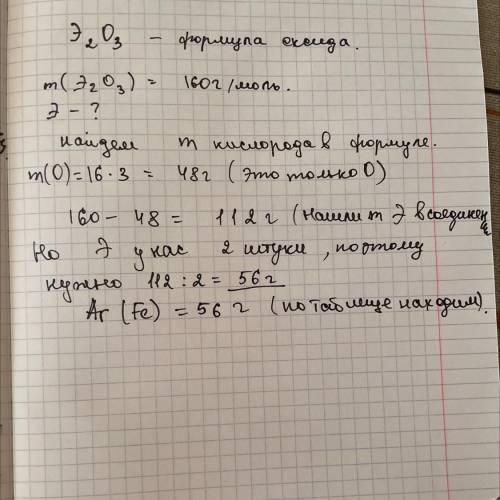 Э₂O₃ – формула оксида.
m(Э₂O₃) = 160г/моль.
Э – ?
найдем m кислорода в формуле.
m(O)=16·3 = 48г (Это только O)
160 – 48 = 112г (Нашли m Э в соединен
Но Э у нас 2 штуки, поэтому
нужно 112 : 2 = 56 г
Ar (Fe) = 56 г (по таблице находим).